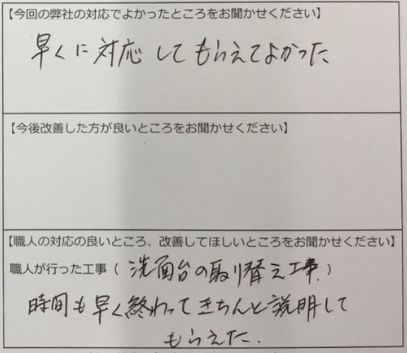 【今回の弊社の対応でよかったところをお聞かせください】
早くに対応してもらえてよかった
【今後改善した方が良いところをお聞かせください】
【職人の対応の良いところ、改善してほしいところをお聞かせください】
職人が行った工事（洗面台の取り替え工事.）
時間も早く終わってきちんと説明して
もらえた.